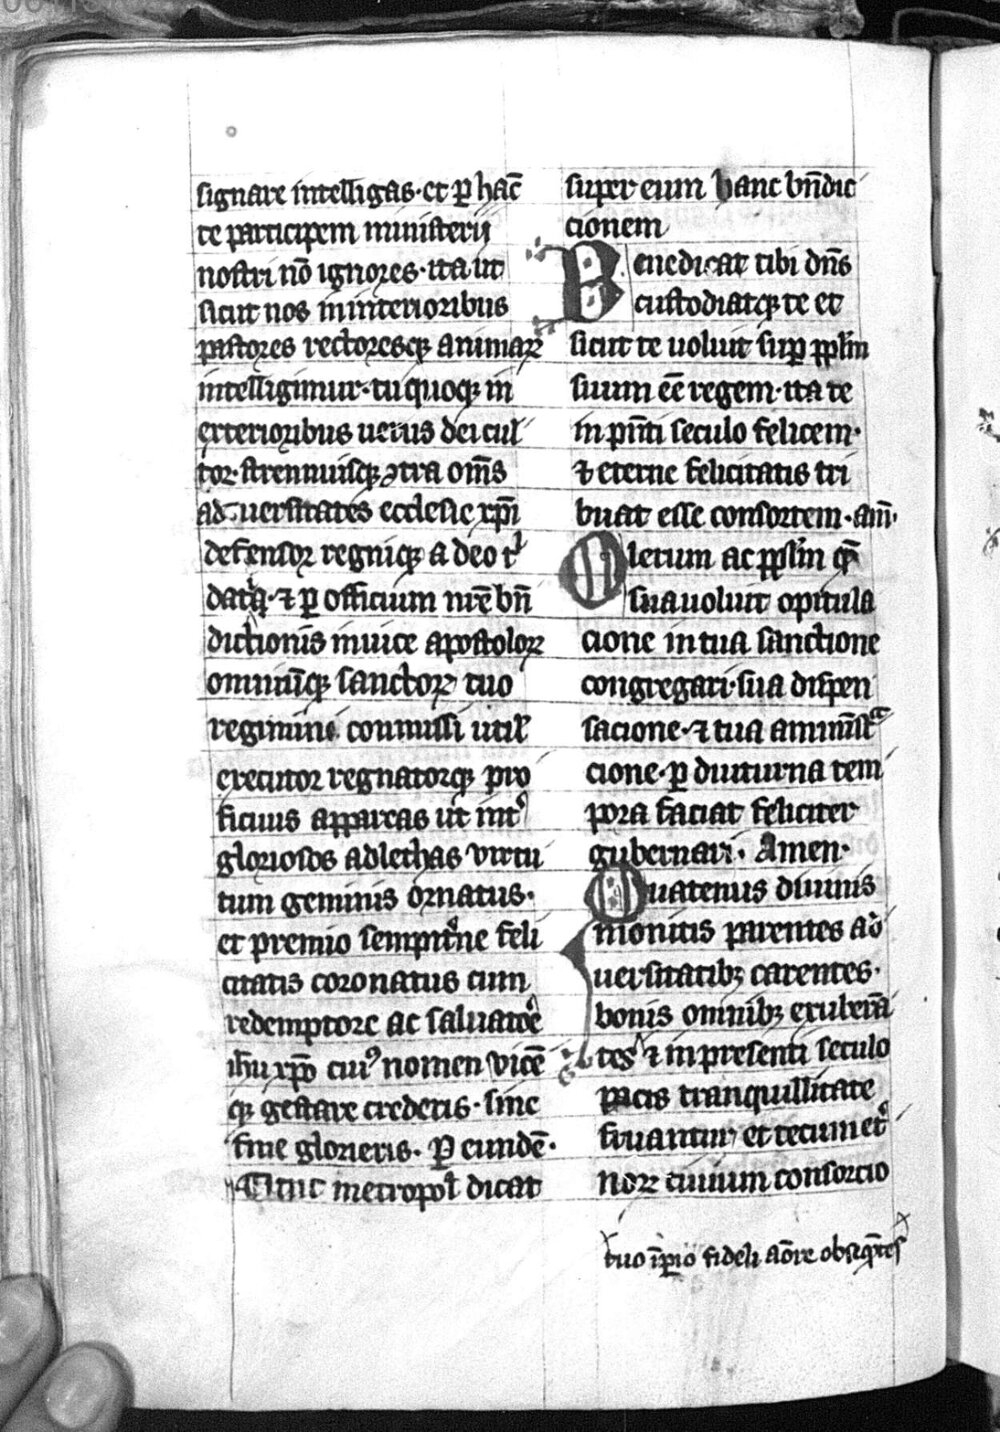 signare intelligas·et ꝑ hac̄
te participem ministerii
nostri nō ignores·ita ut
sicut nos ininterioribus
pastores rectoresqꝫ animaꝝ
intelligimur·tu quoqꝫ in
exterioribus uerus dei cul
tor·strennuisqꝫ ꝯtra om̄s
aduersitates ecclesie xp̄i
defensor regniqꝫ a deo t
dat·⁊ ꝑ officium nr̄e bn̄
dictionis inuice apostoloꝝ
omniūqꝫ sanctoꝝ tuo
regimine conmissi util
executor regnatorqꝫ pro
ficuus appareas ut int
gloriosos adlethas virtu
tum geminis ornatus·
et premio sempit̾ne feli
citatis coronatus cum
redemptore ac saluatoē
ih̄u xp̄o cuiꝰ nomen vicē
qꝫ gestare crederis·sine
fine glorieris. P eundē·
Tunc metropol̄ dicat
super eum hanc bn̄dic
cionem
Benedicat tibi dn̄s
custodiatqꝫ te et
sicut te uoluit suꝑ ppl̄m
suum eē regem·ita te
in pn̄ti seculo felicem·
⁊ eterne felicitatis tri
buat esse consortem·am̄·
Cletum ac ppl̄m qm̄
sua uoluit opitula
cione in tua sanctione
congregari·sua dispen
sacione·⁊ tua aminist
cione·ꝑ diuturna tem
pora faciat feliciter
gubernari. Amen·
Quatenus diuinis
monitis parentes ad
uersitatibꝫ carentes·
bonis omnibꝫ exuberā
tes ⁊ in presenti seculo
pacis tranquillitate
fruantur et tecum et̾
noꝝ ciuium consorcio
tuo īꝑio fideli aōre obseq̄ntes